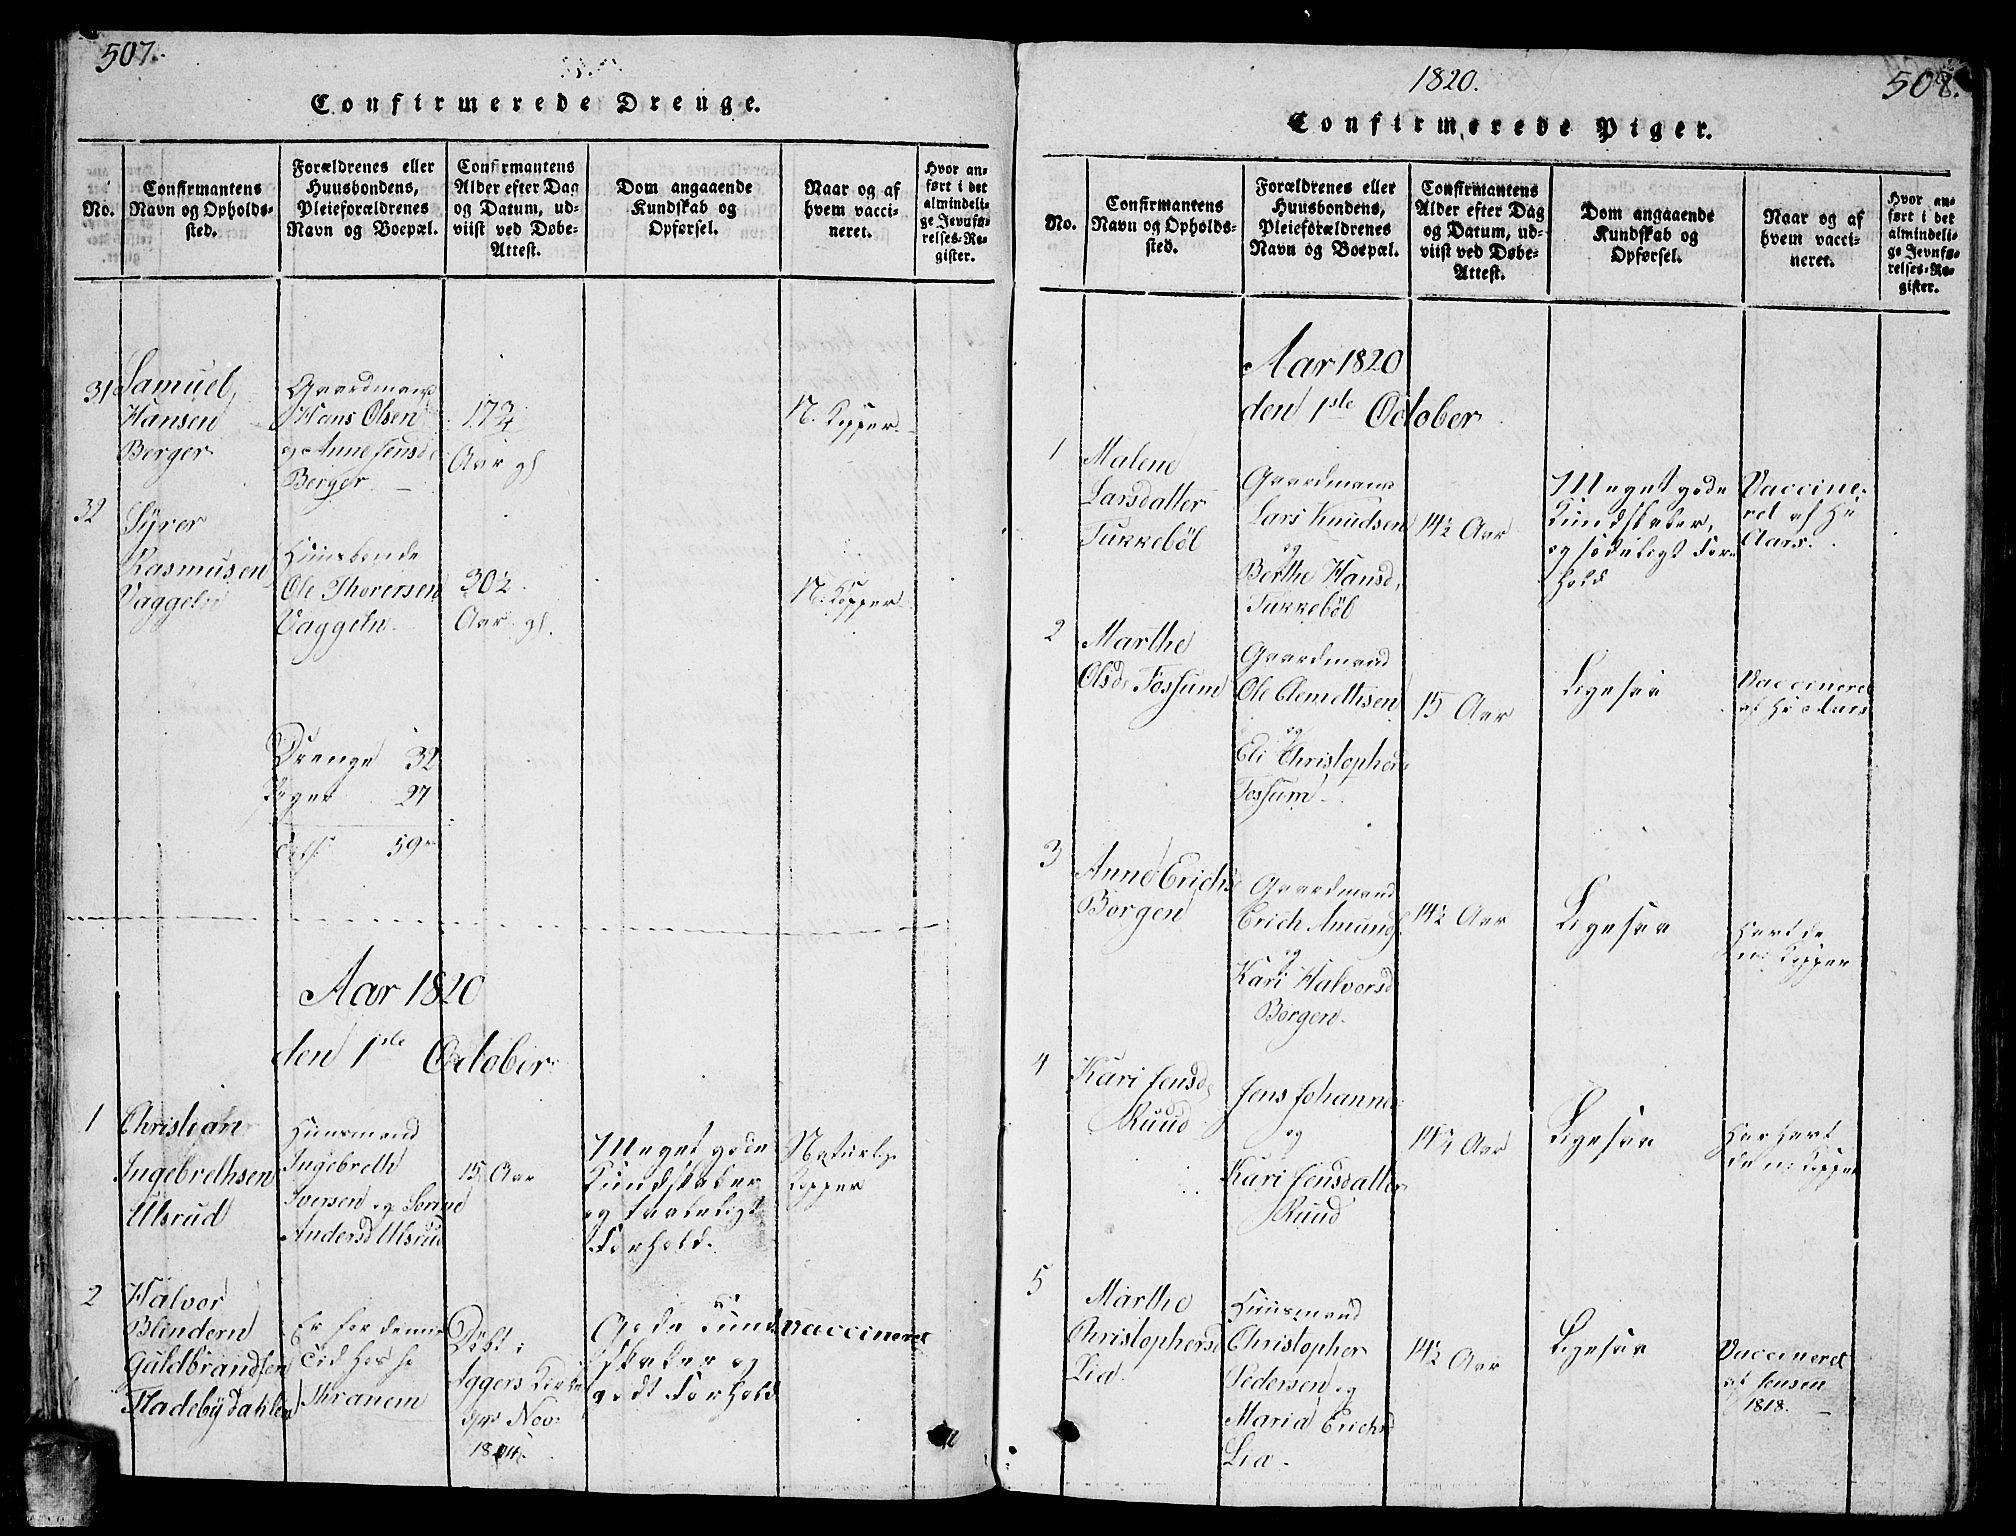 507.
Confirmerede Drenge.
No.
Confirmantens
Navn og Opholds-
sted.
Forældrenes eller
Huusbondens,
Pleieforældrenes
Navn og Boepæl.
Confirmantens
Alder efter Dag
og Datum, ud-
viist ved Døbe-
Attest.
Dom angaaende
Kundskab og
Opførsel.
Naar og af
hvem vacci-
neret.
Hvor an-
ført i det
almindeli-
ge Jevnfø-
relses-Re-
gister.
31 Samuel
Hansen
Berger
Gaardmand
Hans Olsen
og Anne Jensd
Berger
17 3/4
Aar gl
N. Kopper
32 Syver
Rasmusen
Vaggeln
Huusbonde
Ole Thoresen
Vaggeln
30 1/2
Aar gl.
N. Kopper
Drenge 32
Piger 27
59
Aar 1820
den 1ste October
1 Christian
Ingebrethsen
Ulsrud
Huusmand
Ingebreth
Iversen og Sorine
Andersd Ulsrud
15 Aar
Meget gode
Kundskaber
og
Forhold.
Naturlig
Kopper
2 Halvor
Blindern
Guldbrandsen
Fladebÿdahlen
Er for denne
Tid hos
Thranem
Døbt i
Aggers Kirke
Nov.
1804.
Gode Kund
skaber og
godt Forhold
Vaccineret
1820.
508.
Confirmerede Piger.
No.
Confirmantens
Navn og Opholds-
sted.
Forældrenes eller
Huusbondens,
Pleieforældrenes
Navn og Boepæl.
Confirmantens
Alder efter Dag
og Datum, ud-
viist ved Døbe-
Attest.
Dom angaaende
Kundskab og
Opførsel.
Naar og af
hvem vacci-
neret.
Hvor an-
ført i det
almindeli-
ge Jevnfø-
relses-Re-
gister.
Aar 1820
den 1ste October
1 Malene
Larsdatter
Turreböl
Gaardmand
Lars Knudsen
og
Berthe Hansd.
Turreböl
14 1/2 Aar
Meget gode
Kundskaber,
og sædeligt For
hold
Vaccine-
ret af Hr
Aars.
2 Marthe
Olsd. Fossum
Gaardmand
Ole Clemethsen
og
Eli Christophers
Fossum
15 Aar
Ligesaa
Vaccineret
af Hr Aars
3 Anne Erichs
Borgen
Gaardmand
Erich Amunds
og
Kari Halvorsd
Borgen
14 1/2 Aar
Ligesaa
Havt de
n: Kopper
4 Kari Jensd.
Ruud
Jens Johannes
og
Kari Jensdatter
Ruud
14 1/2 Aar
Ligesaa
Har havt
de n: Kopper
5 Marthe
Christophersd
Lia
Huusmand
Christopher
Pedersen og
Maria Erichsd
Lia
14 1/2 Aar
Ligesaa
Vaccineret
af Jensen
1818.